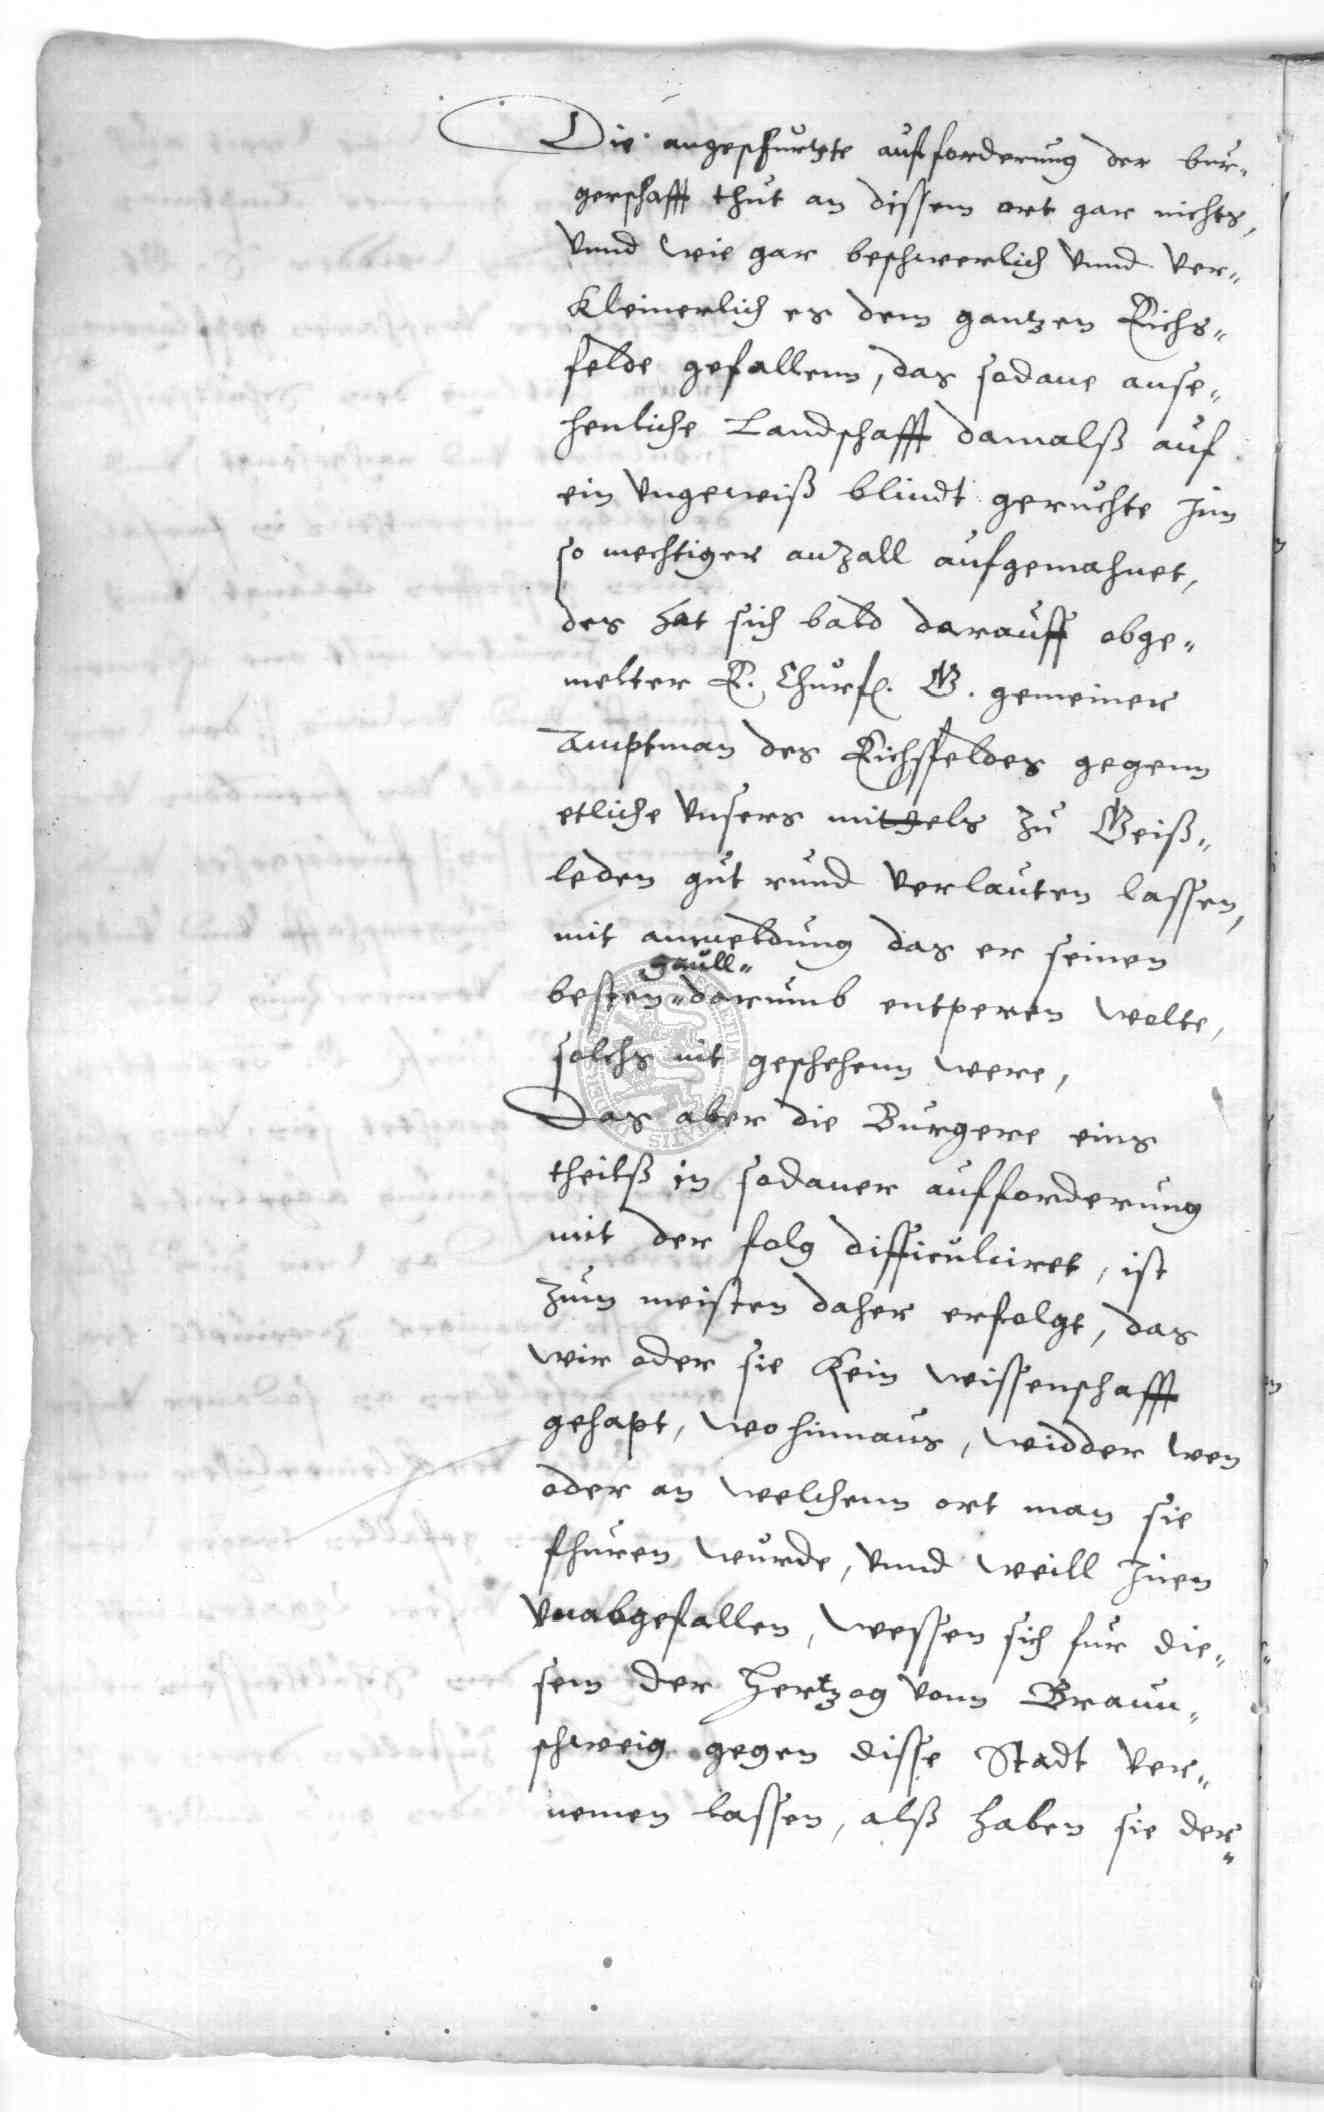 Die angeschurtzte aufforderung der bur-
gerschafft thut an dissem ort gar nichts,
Vnnd wie gar beschwerlich Vnnd Ver-
kleinerlich es dem gantzen Eichs-
felde gefallenn, das sodane anse-
henliche Landschafft damalß auf
ein Vngewiß blindt geruchte Inn
so mechtiger anzall aufgemahnet,
des hat sich bald darauff obge-
melter E. Churf. G. gemeiner
Amptman des Eichsfeldes gegenn
etliche Vnsers mittels zu Geiß-
leden gut rund Verlauten lassen,
mit anmeldung das er seinen
gaull-
besten-darumb entperen wolte,
solchs nit geschehenn were,
Das aber die Burgere eins
theilß in sodaner aufforderung
mit der folg difficultiret, ist
zum meisten daher erfolgt, das
wir oder sie kein wissenschafft
gehapt, wo hinnaus, widder wen
oder an welchenn ort man sie
fhuren wurde, Vnnd weill Inen
Vnabgefallen, wessen sich fur die-
sem der Hertzog Vonn Braun-
schweig gegen disse Stadt Ver-
nemen lassen, alß haben sie der-